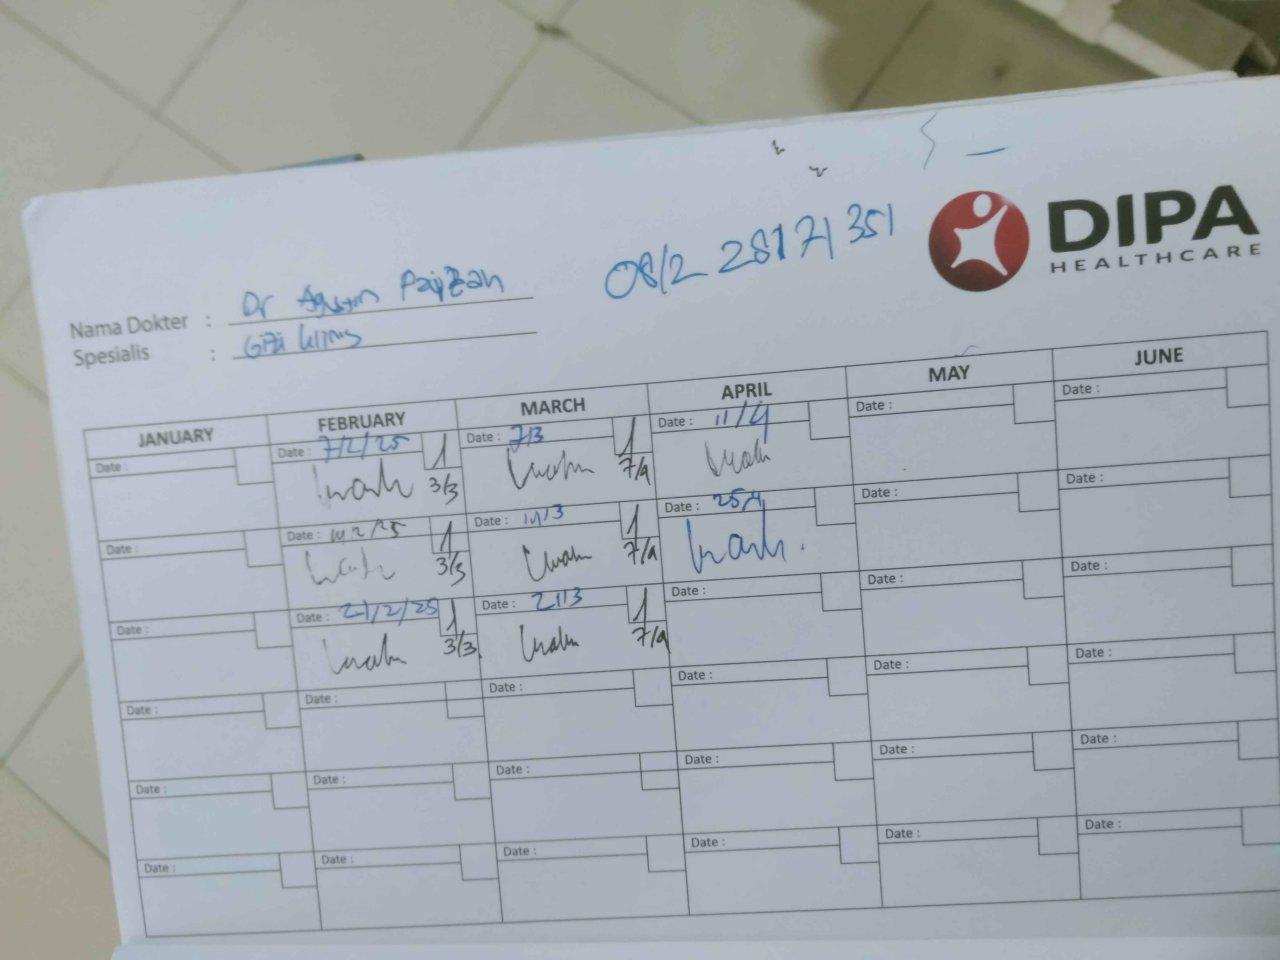 DIPA
HEALTHCARE
0812 28171351
Nama Dokter : Dr Agustin
Spesialis : Gizi Klinis
JANUARY FEBRUARY MARCH APRIL MAY JUNE
Date : Date : 7/2/25 1 Date : 7/3 1 Date : 11/4 Date : Date :
3/3 7/4
Date : Date : /2/25 1 Date : 11/3 1 Date : 25/4 Date : Date :
3/3 7/4
Date : Date : 21/2/25 1 Date : 21/3 1 Date : Date : Date :
3/3 7/4
Date : Date : Date : Date : Date : Date :
Date : Date : Date : Date : Date : Date :
Date : Date : Date : Date : Date : Date :